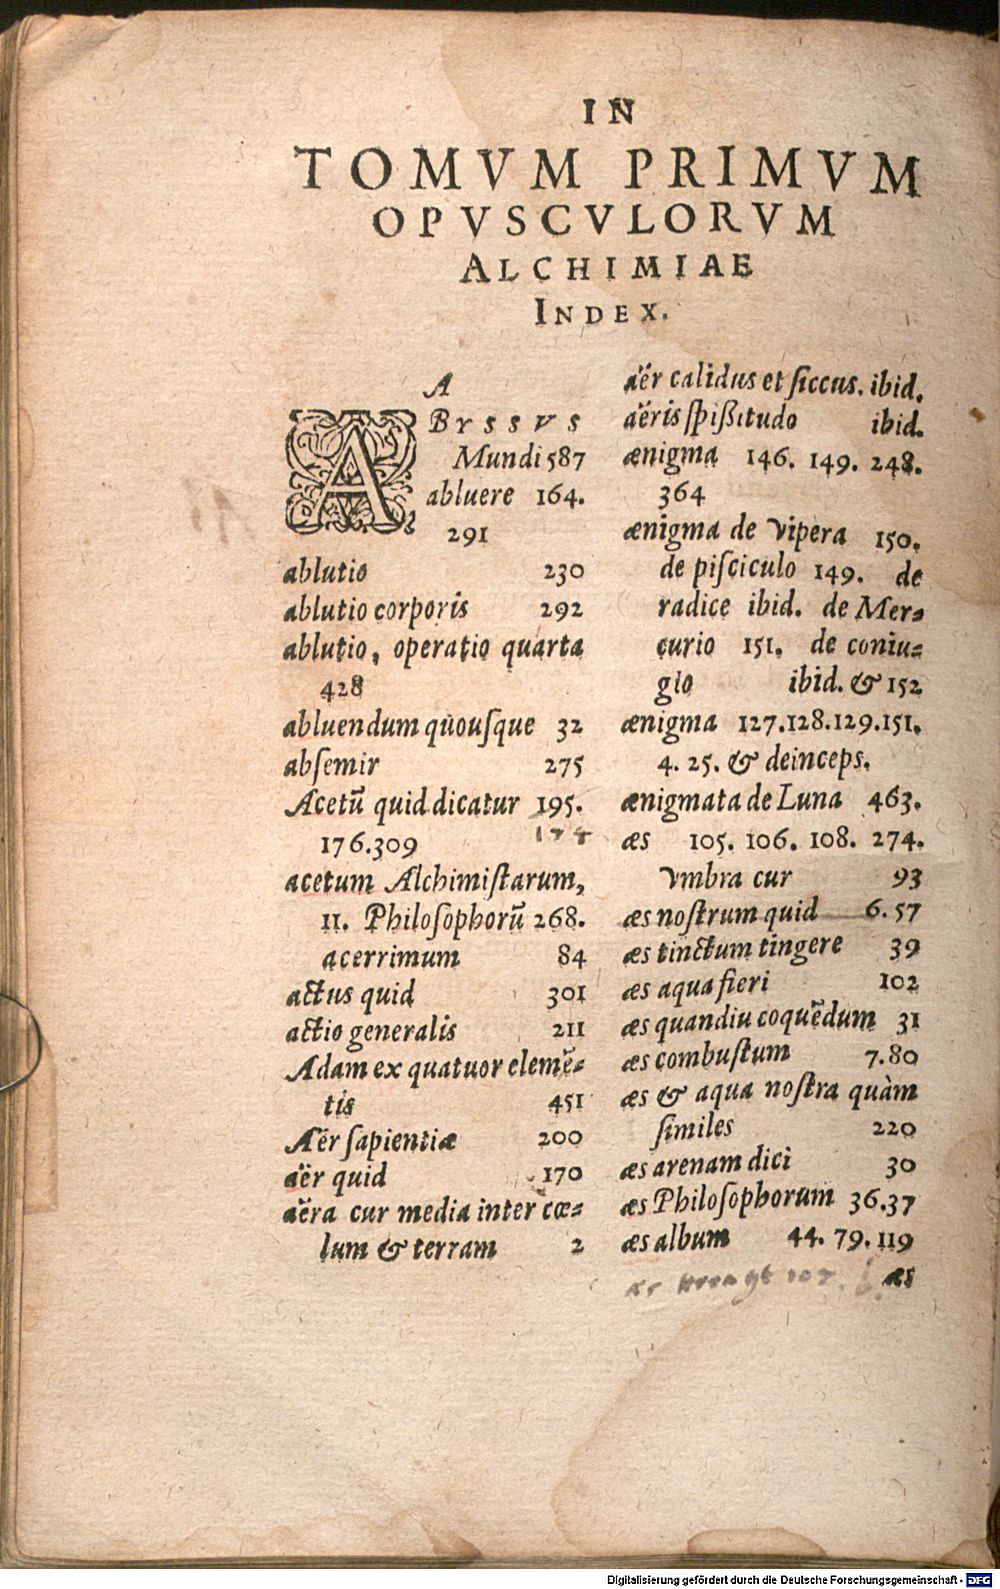 IN
TOMVM PRIMVM
OPVSCVLORVM
ALCHIMIAE
INDEX.
A
ABYSSVS
Mundi 587
abluere 164.
291
ablutio 230
ablutio corporis 292
ablutio, operatio quarta
428
abluendum quousque 32
absemir 275
Acetū quid dicatur 195.
176.309
acetum Alchimistarum,
11. Philosophorū 268.
acerrimum 84
actus quid 301
actio generalis 211
Adam ex quatuor elemē-
tis 451
Aër sapientiæ 200
aër quid 170
aëra cur media inter cœ-
lum & terram 2
aër calidus et siccus. ibid.
aëris spißitudo ibid.
ænigma 146. 149. 248.
364
ænigma de vipera 150.
de pisciculo 149. de
radice ibid. de Mer-
curio 151. de coniu-
gio ibid. & 152
ænigma 127.128.129.151.
4. 25. & deinceps.
ænigmata de Luna 463.
æs 105. 106. 108. 274.
vmbra cur 93
æs nostrum quid 6.57
æs tinctum tingere 39
æs aqua fieri 102
æs quandiu coquēdum 31
æs combustum 7.80
æs & aqua nostra quàm
similes 220
æs arenam dici 30
æs Philosophorum 36.37
æs album 44. 79. 119
æs
Digitalisierung gefördert durch die Deutsche Forschungsgemeinschaft - DFG